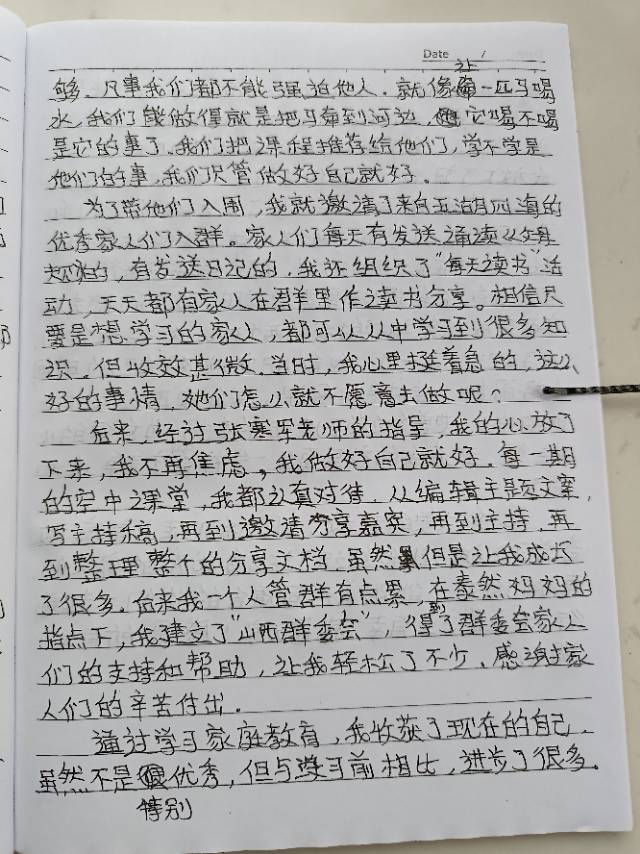 Date /
够。凡事我们都不能强迫他人。就像让一匹马喝
水，我们能做得就是把马牵到河边，它喝不喝
是它的事了。我们把课程推荐给他们，学不学是
他们的事，我们尽管做好自己就好。
为了带他们入圈，我就邀请了来自五湖四海的
优秀家人们入群。家人们每天有发送诵读父母
规的，有发送日记的，我还组织了“每天读书”活
动，天天都有家人在群里作读书分享。相信只
要是想学习的家人，都可以从中学习到很多知
识，但收效甚微。当时，我心里挺着急的，这么
好的事情，她们怎么就不愿意去做呢？
后来，经过张寒军老师的指导，我的心放了
下来，我不再焦虑，我做好自己就好。每一期
的空中课堂，我都认真对待，从编辑主题文案，
写主持稿，再到邀请分享嘉宾，再到主持，再
到整理整个的分享文档，虽然累但是让我成长
了很多。后来我一个人管群有点累，在泰然妈妈的
指点下，我建立了“山西群委会”，得到了群委会家人
们的支持和帮助，让我轻松了不少，感谢家
人们的辛苦付出。
通过学习家庭教育，我收获了现在的自己。
虽然不是特别优秀，但与学习前相比，进步了很多。